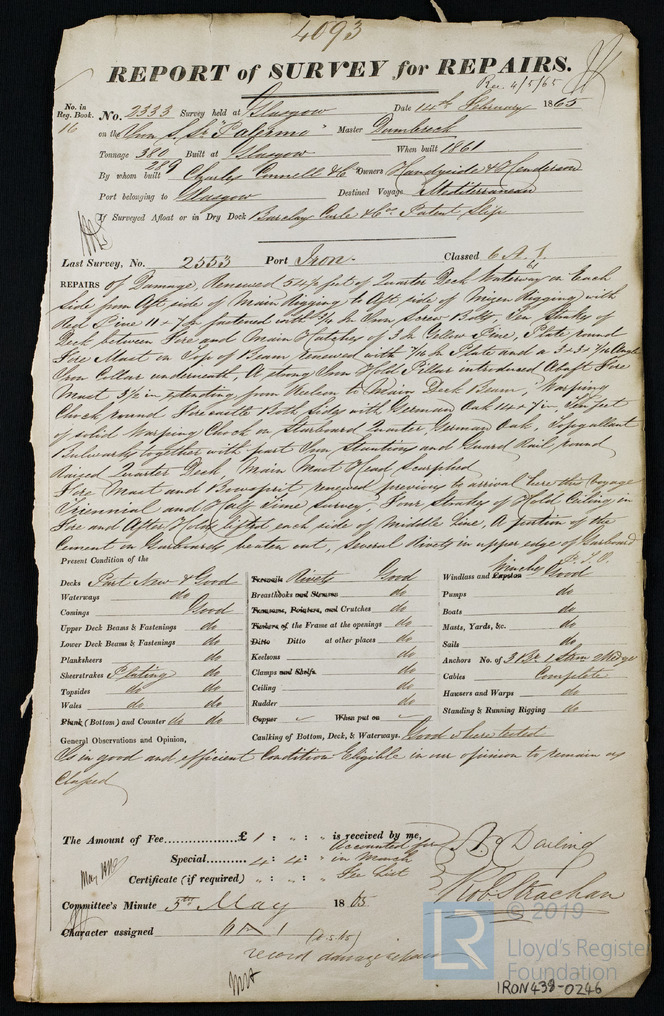 4093
REPORT of SURVEY for REPAIRS.
Rec. 4/5/65
No. in Reg. Book. 16
No. 2333 Survey held at Glasgow Date 14th February 1865
on the Iron S. Sr "Palermo" Master Dumbreck
Tonnage 380 289 Built at Glasgow When built 1861
By whom built Charles Connell & Co Owners Handyside & Henderson
Port belonging to Glasgow Destined Voyage Mediterranean
If Surveyed Afloat or in Dry Dock Barclay Curle & Co. Patent Slip
Last Survey, No. 2553 Port Iron. Classed 6 A. 1.
REPAIRS of Damage, Renewed 54½ feet of Quarter Deck Waterway on Each
side from Aft side of Main Rigging to Aft side of Mizen Rigging with
Red Pine 11 x 7 in fastened with Iron Screw Bolts, Ten Strakes of
Deck between Fore and Main Hatches of 3 in Yellow Pine, Plate round
Fore Mast on Top of Beam renewed with 7/16 in Plate and a 3 x 3 x 7/16 Angle
Iron Collar underneath, A strong Iron Hold Pillar introduced Abaft Fore
Mast 3½ in extending from Keelson to Main Deck Beam, Warping
Chock round Forecastle Both Sides with German Oak 14 x 7 in, Ten feet
of solid Warping Chock on Starboard Quarter German Oak, Topgallant
Bulwarks together with part Iron Stantions and Guard Rail round
Raised Quarter Deck, Main Mast Head Scarphed
Fore Mast and Bowsprit renewed previous to arrival here this Voyage
Triennial and Half Time Survey, Four Strakes of Hold Ceiling in
Fore and After Holds lifted each side of Middle Line, A portion of the
Cement on Garboards beaten out, Several Rivets in upper edge of Garboard
P.T.O.
Present Condition of the
Decks Part New & Good
Waterways do
Comings Good
Upper Deck Beams & Fastenings do
Lower Deck Beams & Fastenings do
Planksheers do
Sheerstrakes Plating do
Topsides do
Wales do do
Plank (Bottom) and Counter do do
Treenails Rivets Good
Breasthooks and Stemson do
Transoms, Pointers, and Crutches do
Timbers of the Frame at the openings do
Ditto Ditto at other places do
Keelsons do
Clamps and Shelfs do
Ceiling do
Rudder do
Copper When put on
Caulking of Bottom, Deck, & Waterways. Good where tested
Windlass and Capstan Winches Good
Pumps do
Boats do
Masts, Yards, &c. do
Sails do
Anchors No. of 3 Br 1 Strm 2 Kedge
Cables Complete
Hawsers and Warps do
Standing & Running Rigging do
General Observations and Opinion,
Is in good and efficient Condition Eligible in our opinion to remain as
Classed
The Amount of Fee £ 1 : " : " is received by me,
Special 4 : 4 : " accounted for in March
Certificate (if required) " : " : " Fee List
A. Darling
Robt Strachan
Committee's Minute 5th May 1865
Character assigned 6 A 1
record damage repairs
© 2019
LR
Lloyd's Register
Foundation
IRON438-0246